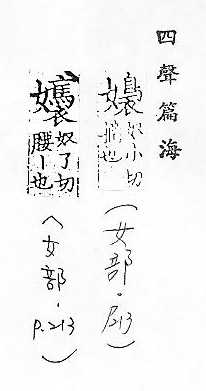 四聲篇海
嬝 奴小切
也
(女部·P.213)
奴了切
腰丨也
(女部·P.213)